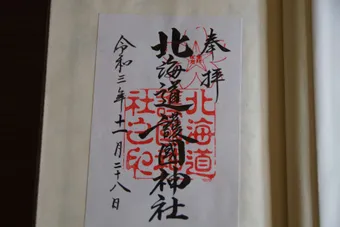 奉拝
北海道護國神社
北海道護國神社之印
令和三年十一月二十八日